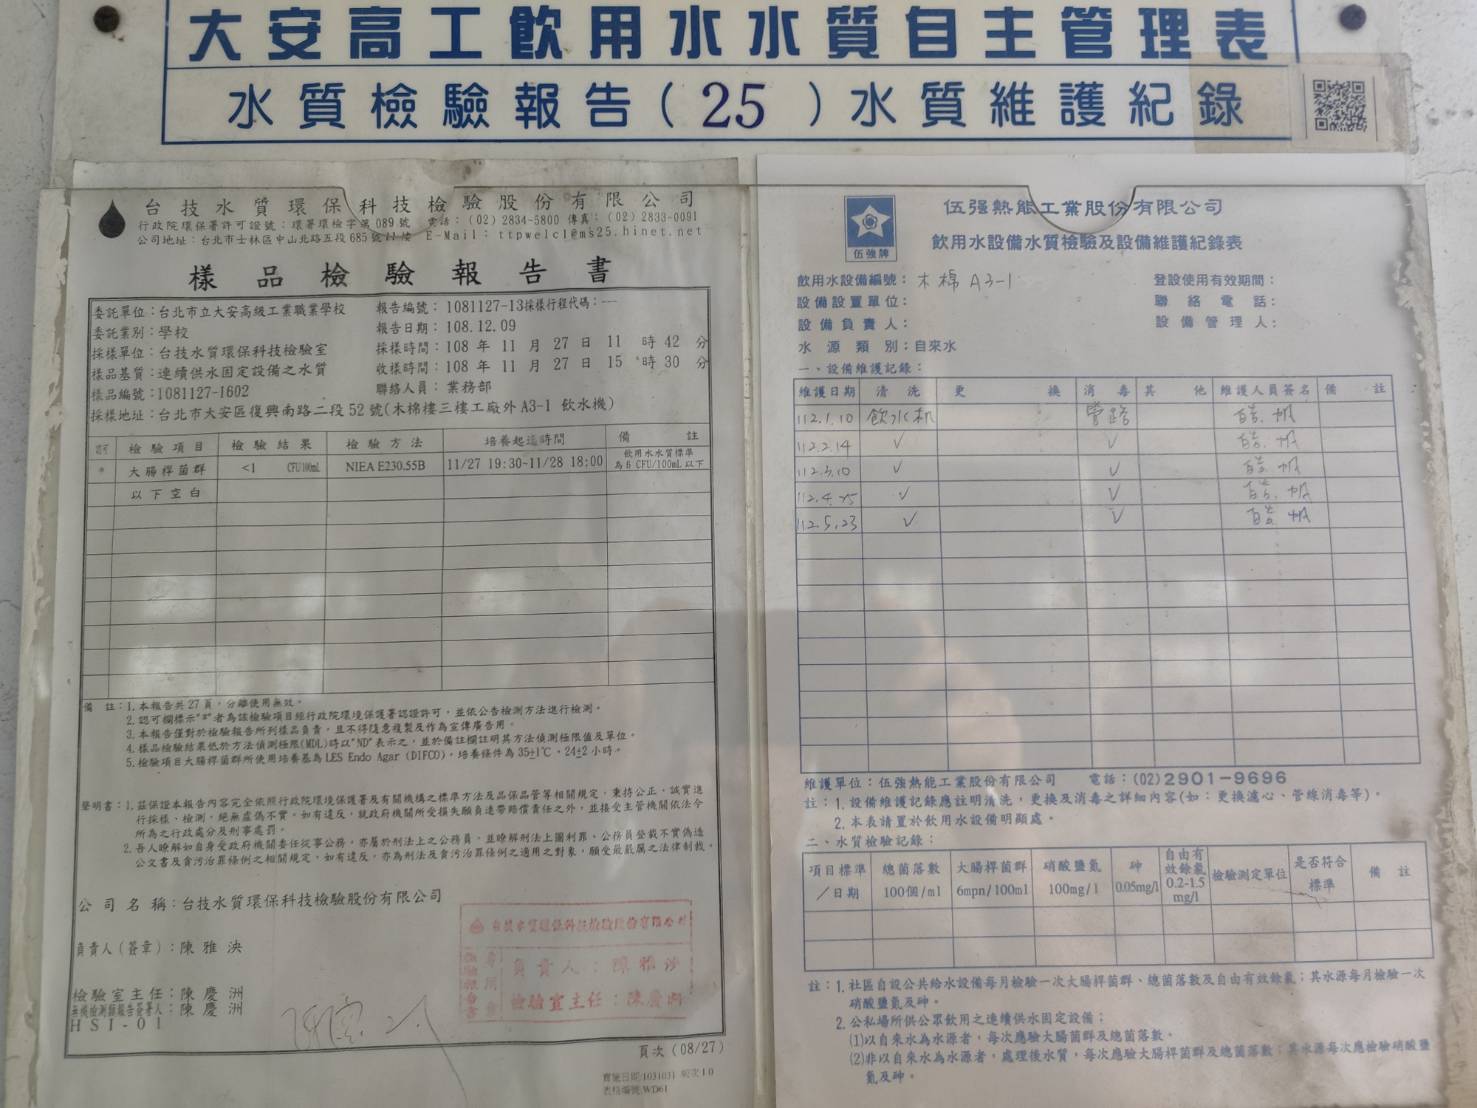 大安高工飲用水水質自主管理表
水質檢驗報告(25)水質維護紀錄
台技水質環保科技檢驗股份有限公司
行政院環保署許可證號：環署環檢字第089號 電話：(02) 2834-5800 傳真：(02) 2833-0091
公司地址：台北市士林區中山北路五段685號11樓 E-Mail：ttpwelcl@ms25.hinet.net
樣品檢驗報告書
委託單位：台北市立大安高級工業職業學校 報告編號：1081127-13採樣行程代碼：---
委託業別：學校 報告日期：108.12.09
採樣單位：台技水質環保科技檢驗室 採樣時間：108 年 11 月 27 日 11 時 42 分
樣品基質：連續供水固定設備之水質 收樣時間：108 年 11 月 27 日 15 時 30 分
樣品編號：1081127-1602 聯絡人員：業務部
採樣地址：台北市大安區復興南路二段52號(木棉樓三樓工廠外A3-1 飲水機)
檢驗項目 檢驗結果 檢驗方法 培養起迄時間 備註
* 大腸桿菌群 <1 CFU/100mL NIEA E230.55B 11/27 19:30~11/28 18:00 飲用水水質標準為6 CFU/100mL以下
以下空白
備 註：1.本報告共27頁，分離使用無效。
2.認可欄標示"*"者為該檢驗項目經行政院環境保護署認證許可，並依公告檢測方法進行檢測。
3.本報告僅對於檢驗報告所列樣品負責，且不得隨意複製及作為宣傳廣告用。
4.樣品檢驗結果低於方法偵測極限(MDL)時以"ND"表示之，並於備註欄註明其方法偵測極限值及單位。
5.檢驗項目大腸桿菌群所使用培養基為LES Endo Agar (DIFCO)，培養條件為35±1℃，24±2小時。
聲明書：1.茲保證本報告內容完全依照行政院環境保護署及有關機構之標準方法及品保品管等相關規定，秉持公正，誠實進
行採樣、檢測，絕無虛偽不實，如有違反，就政府機關所受損失願負連帶賠償責任之外，並接受主管機關依法令
所為之行政處分及刑事處罰。
2.吾人瞭解如自身受政府機關委任從事公務，亦屬於刑法上之公務員，並瞭解刑法上圖利罪、公務員登載不實偽造
公文書及貪污治罪條例之相關規定，如有違反，亦為刑法及貪污治罪條例之適用之對象，願受最嚴厲之法律制裁。
公司名稱：台技水質環保科技檢驗股份有限公司
負責人(簽章)：陳雅泱
檢驗室主任：陳慶洲
無機檢測類報告簽署人：陳慶洲
HSI-01
負責人：陳雅泱
檢驗室主任：陳慶洲
頁次(08/27)
實施日期:1031031 版次1.0
表格編號:WD61
伍強牌
伍强熱能工業股份有限公司
飲用水設備水質檢驗及設備維護紀錄表
飲用水設備編號：木棉 A3-1 登設使用有效期間：
設備設置單位： 聯絡電話：
設備負責人： 設備管理人：
水源類別：自來水
一、設備維護記錄：
維護日期 清洗 更換 消毒 其他 維護人員簽名 備註
112.1.10 飲水机 管路
112.2.14 ✓ ✓
112.3.10 ✓ ✓
112.4.25 ✓ ✓
112.5.23 ✓ ✓
維護單位：伍強熱能工業股份有限公司 電話：(02)2901-9696
註：1.設備維護記錄應註明清洗，更換及消毒之詳細內容(如：更換濾心、管線消毒等)。
2.本表請置於飲用水設備明顯處。
二、水質檢驗記錄：
項目標準／日期 總菌落數 100個/ml 大腸桿菌群 6mpn/100ml 硝酸鹽氮 100mg/l 砷 0.05mg/l 自由有效餘氯 0.2-1.5 mg/l 檢驗測定單位 是否符合標準 備註
註：1.社區自設公共給水設備每月檢驗一次大腸桿菌群、總菌落數及自由有效餘氯；其水源每月檢驗一次
硝酸鹽氮及砷。
2.公私場所供公眾飲用之連續供水固定設備；
(1)以自來水為水源者，每次應驗大腸菌群及總菌落數。
(2)非以自來水為水源者，處理後水質，每次應驗大腸桿菌群及總菌落數；其水源每次應檢驗硝酸鹽
氮及砷。